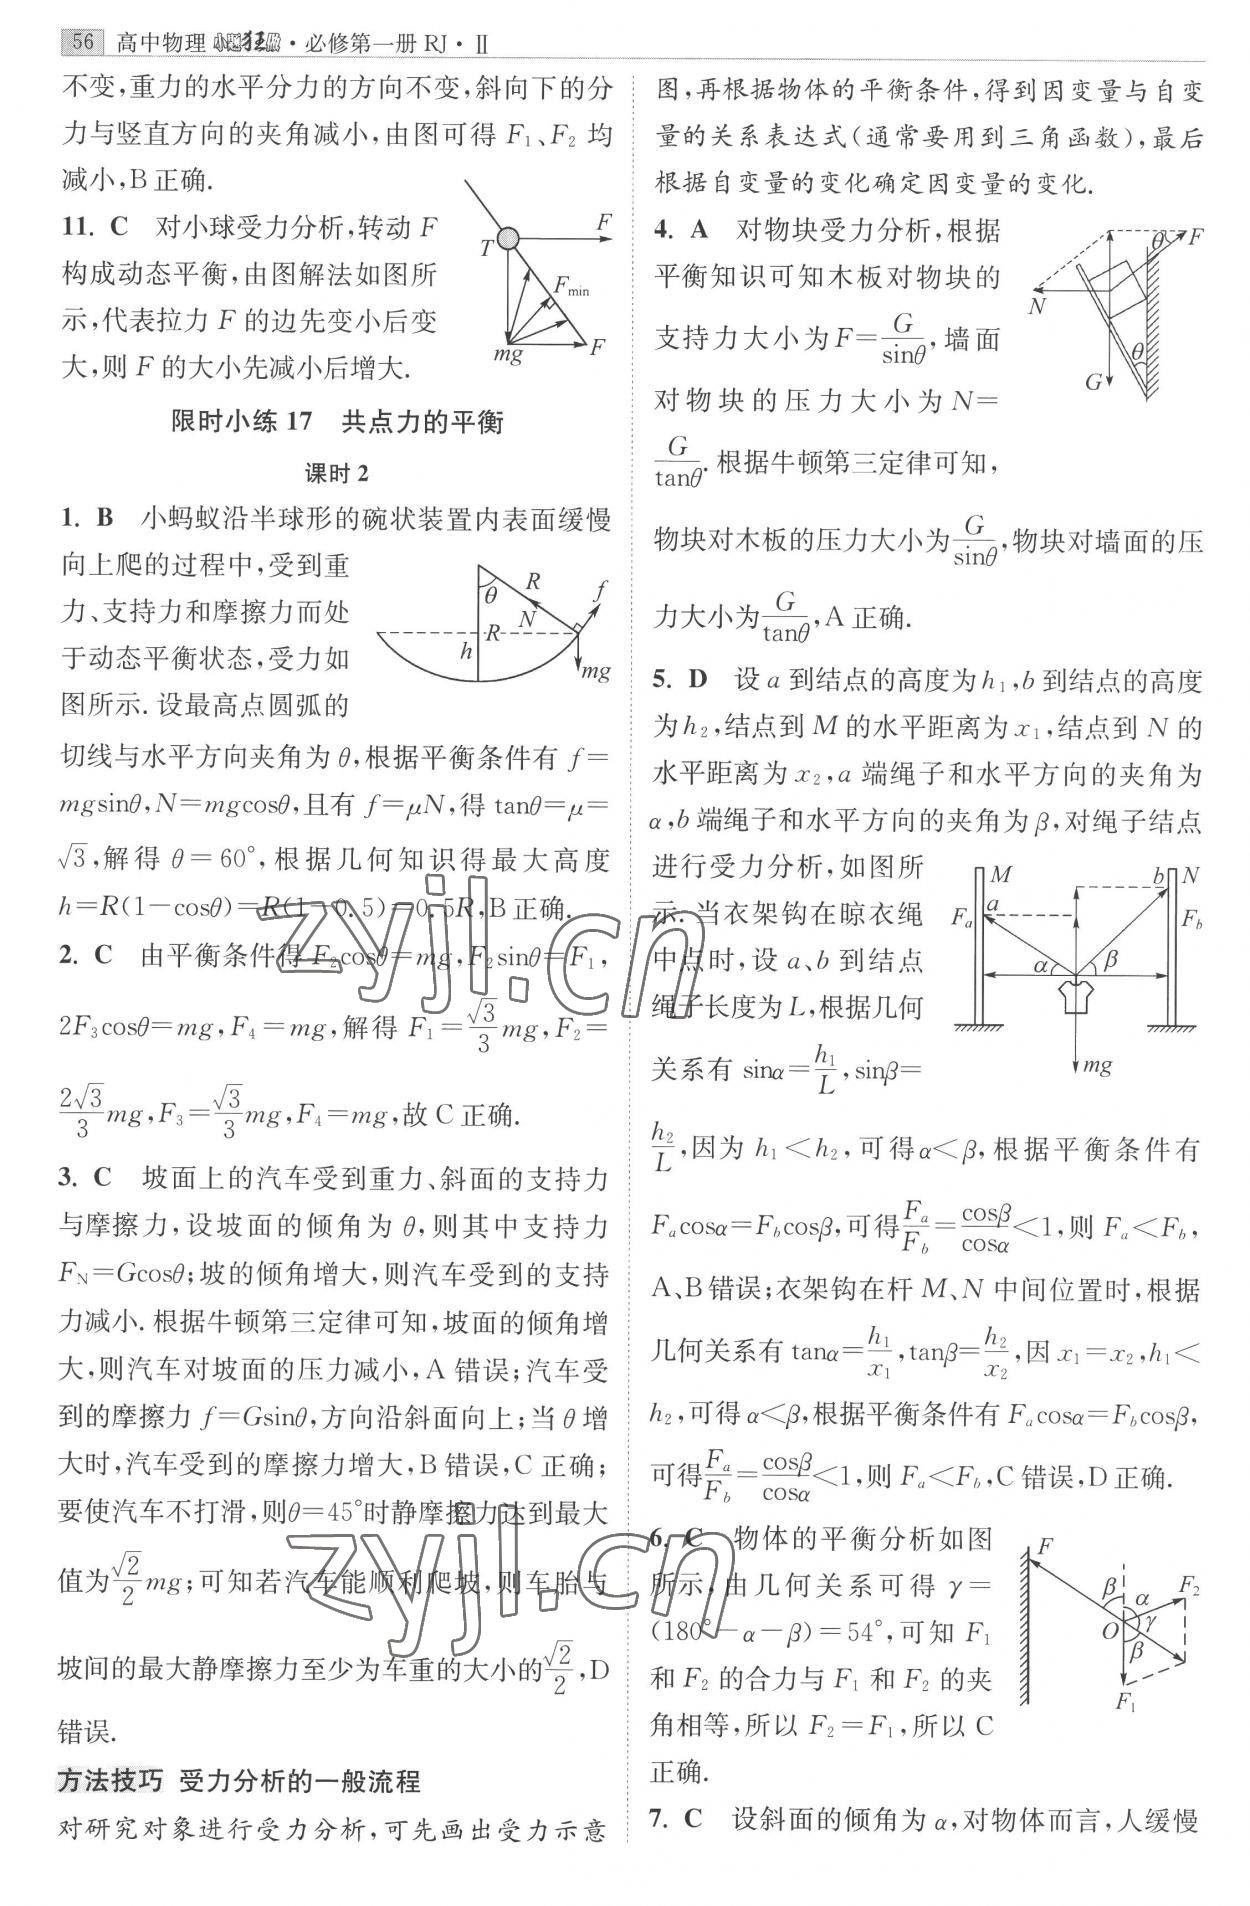 56 高中物理 小题狂做·必修第一册 RJ·Ⅱ
不变,重力的水平分力的方向不变,斜向下的分
力与竖直方向的夹角减小,由图可得 F₁、F₂ 均
减小,B 正确.
11. C 对小球受力分析,转动 F
构成动态平衡,由图解法如图所
示,代表拉力 F 的边先变小后变
大,则 F 的大小先减小后增大.
T
F
Fmin
mg
F
限时小练 17 共点力的平衡
课时 2
1. B 小蚂蚁沿半球形的碗状装置内表面缓慢
向上爬的过程中,受到重
力、支持力和摩擦力而处
于动态平衡状态,受力如
图所示. 设最高点圆弧的
θ R f
N
R
h
mg
切线与水平方向夹角为 θ,根据平衡条件有 f=
mgsinθ,N=mgcosθ,且有 f=μN,得 tanθ=μ=
√3,解得 θ=60°,根据几何知识得最大高度
h=R(1-cosθ)=R(1-0.5)=0.5R,B 正确.
2. C 由平衡条件得 F₂cosθ=mg,F₂sinθ=F₁,
2F₃cosθ=mg,F₄=mg,解得 F₁=√3/3 mg,F₂=
2√3/3 mg,F₃=√3/3 mg,F₄=mg,故 C 正确.
3. C 坡面上的汽车受到重力、斜面的支持力
与摩擦力,设坡面的倾角为 θ,则其中支持力
F_N=Gcosθ;坡的倾角增大,则汽车受到的支持
力减小. 根据牛顿第三定律可知,坡面的倾角增
大,则汽车对坡面的压力减小,A 错误;汽车受
到的摩擦力 f=Gsinθ,方向沿斜面向上;当 θ 增
大时,汽车受到的摩擦力增大,B 错误,C 正确;
要使汽车不打滑,则θ=45°时静摩擦力达到最大
值为√2/2 mg;可知若汽车能顺利爬坡,则车胎与
坡间的最大静摩擦力至少为车重的大小的√2/2,D
错误.
方法技巧 受力分析的一般流程
对研究对象进行受力分析,可先画出受力示意
图,再根据物体的平衡条件,得到因变量与自变
量的关系表达式(通常要用到三角函数),最后
根据自变量的变化确定因变量的变化.
4. A 对物块受力分析,根据
平衡知识可知木板对物块的
支持力大小为 F=G/sinθ,墙面
对物块的压力大小为 N=
G/tanθ. 根据牛顿第三定律可知,
θ F
N
θ
G
物块对木板的压力大小为G/sinθ,物块对墙面的压
力大小为G/tanθ,A 正确.
5. D 设 a 到结点的高度为 h₁,b 到结点的高度
为 h₂,结点到 M 的水平距离为 x₁,结点到 N 的
水平距离为 x₂,a 端绳子和水平方向的夹角为
α,b 端绳子和水平方向的夹角为 β,对绳子结点
进行受力分析,如图所
示. 当衣架钩在晾衣绳
中点时,设 a、b 到结点
绳子长度为 L,根据几何
关系有 sinα=h₁/L,sinβ=
M b N
Fa a Fb
α β
mg
h₂/L,因为 h₁<h₂,可得α<β,根据平衡条件有
Fₐcosα=F_bcosβ,可得Fₐ/F_b=cosβ/cosα<1,则 Fₐ<F_b,
A、B 错误;衣架钩在杆 M、N 中间位置时,根据
几何关系有 tanα=h₁/x₁,tanβ=h₂/x₂,因 x₁=x₂,h₁<
h₂,可得 α<β,根据平衡条件有 Fₐcosα=F_bcosβ,
可得Fₐ/F_b=cosβ/cosα<1,则 Fₐ<F_b,C 错误,D 正确.
6. C 物体的平衡分析如图
所示,由几何关系可得 γ=
(180°-α-β)=54°,可知 F₁
和 F₂ 的合力与 F₁ 和 F₂ 的夹
角相等,所以 F₂=F₁,所以 C
正确.
F
β α F₂
O γ
β
F₁
7. C 设斜面的倾角为 α,对物体而言,人缓慢
zyjl.cn
zyjl.cn